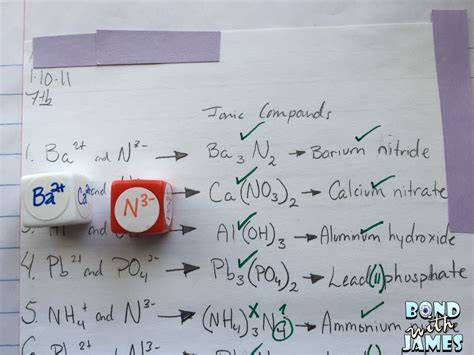 1.10.11
7th
Ionic Compounds
1. Ba²⁺ and N³⁻ → Ba₃N₂ → Barium nitride
Ba²⁺ Ca²⁺ and N³⁻ → Ca(NO₃)₂ → Calcium nitrate
and → Al(OH)₃ → Aluminum hydroxide
4. Pb²⁺ and PO₄³⁻ → Pb₃(PO₄)₂ → Lead(II)phosphate
5. NH₄⁺ and N³⁻ → (NH₄)₃N → Ammonium
BOND
with
JAMES